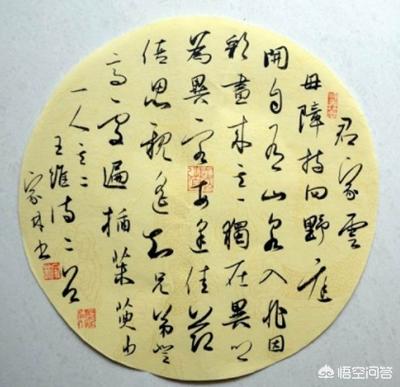 君家雲
母障持向野庭
開自有山泉入非因
彩畫来其一獨在異鄉
為異客每逢佳節
倍思親遥知兄弟登
高處遍插茱萸少
一人其二
王維詩二首
書
悟空问答